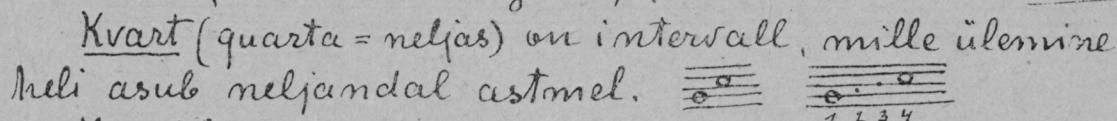 Kvart (quarta = neljas) on intervall, mille ülemine
heli asub neljandal astmel.
1 2 3 4